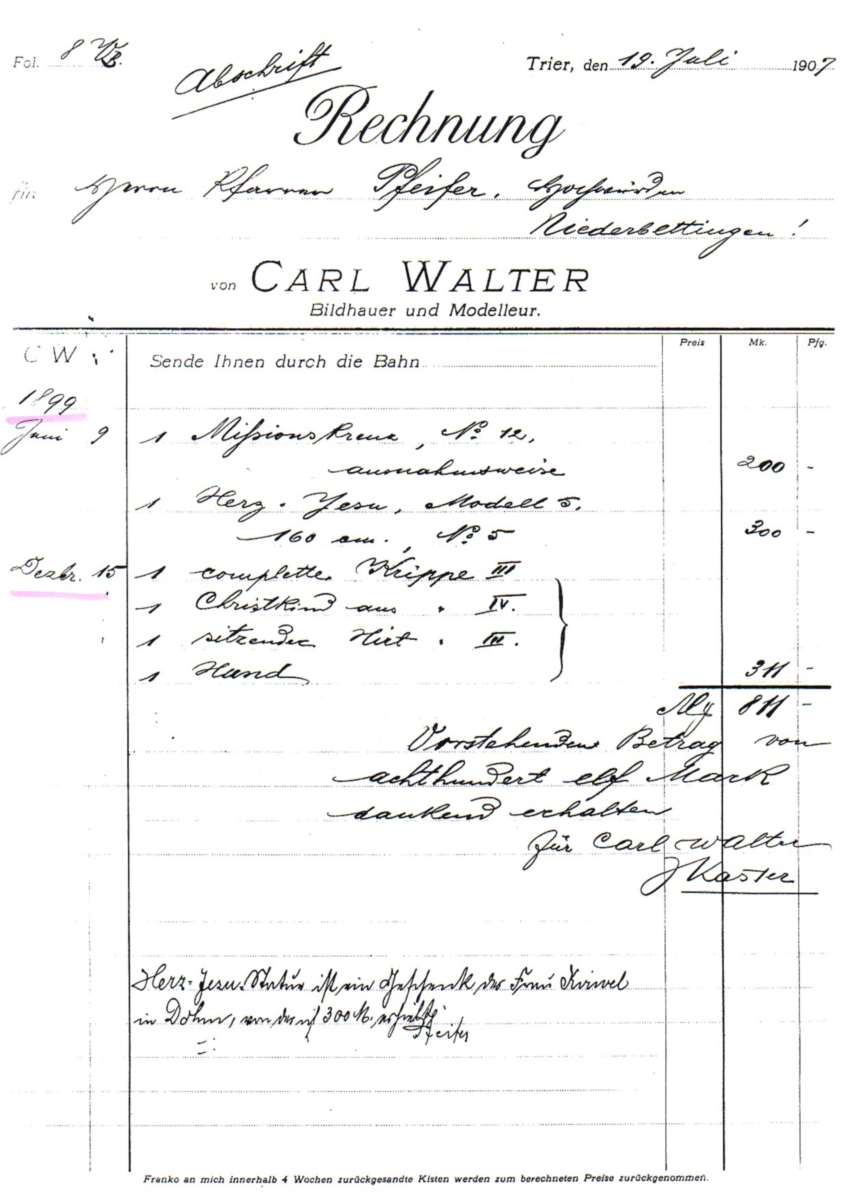 Fol. 8
Abschrift
Trier, den 19. Juli 1907
Rechnung
für Herrn Pfarrer Pfeifer. Hochwürden
Niederbettingen!
von CARL WALTER
Bildhauer und Modelleur.
Preis Mk. Pfg.
C W Sende Ihnen durch die Bahn
1899
Juni 9 1 Missionskreuz, No 12,
ausnahmsweise 200 -
1 Herz-Jesu, Modell 5,
160 cm., No 5 300 -
Dezbr. 15 1 complette Krippe III
1 Christkind aus " IV.
1 sitzender Hirt " III.
1 Hund 311 -
811 -
Vorstehenden Betrag von
achthundert elf Mark
dankend erhalten
für Carl Walter
J Kaster
Herz-Jesu-Statue ist ein Geschenk der Frau
in Dohm, von der ich 300 M. erhielt.
Pfeifer
Franko an mich innerhalb 4 Wochen zurückgesandte Kisten werden zum berechneten Preise zurückgenommen.